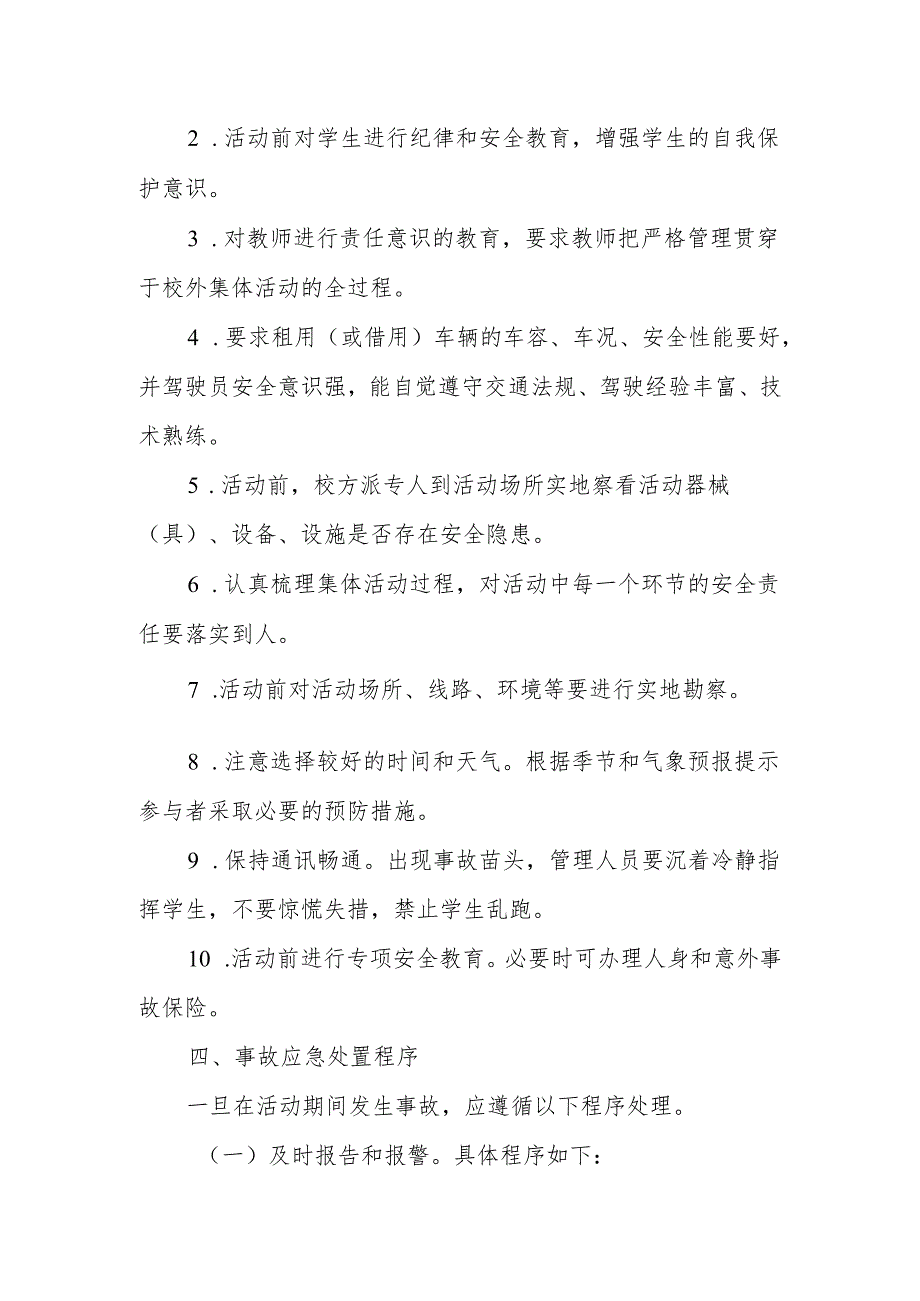 2 .活动前对学生进行纪律和安全教育，增强学生的自我保
护意识。
3 .对教师进行责任意识的教育，要求教师把严格管理贯穿
于校外集体活动的全过程。
4 .要求租用（或借用）车辆的车容、车况、安全性能要好，
并驾驶员安全意识强，能自觉遵守交通法规、驾驶经验丰富、技
术熟练。
5 .活动前，校方派专人到活动场所实地察看活动器械
（具）、设备、设施是否存在安全隐患。
6 .认真梳理集体活动过程，对活动中每一个环节的安全责
任要落实到人。
7 .活动前对活动场所、线路、环境等要进行实地勘察。
8 .注意选择较好的时间和天气。根据季节和气象预报提示
参与者采取必要的预防措施。
9 .保持通讯畅通。出现事故苗头，管理人员要沉着冷静指
挥学生，不要惊慌失措，禁止学生乱跑。
10 .活动前进行专项安全教育。必要时可办理人身和意外事
故保险。
四、事故应急处置程序
一旦在活动期间发生事故，应遵循以下程序处理。
（一）及时报告和报警。具体程序如下：